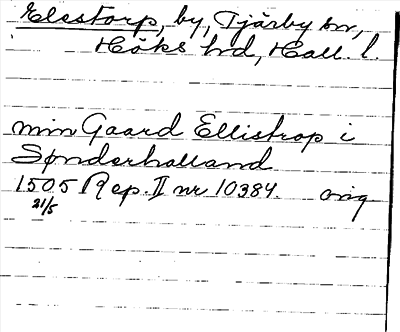 Elestorp, by, Tjärby sn,
Höks hd, Hall. l.
min Gaard Ellistrop i
Sønderhalland
1505 Rep. II nr 10384. orig
21/5